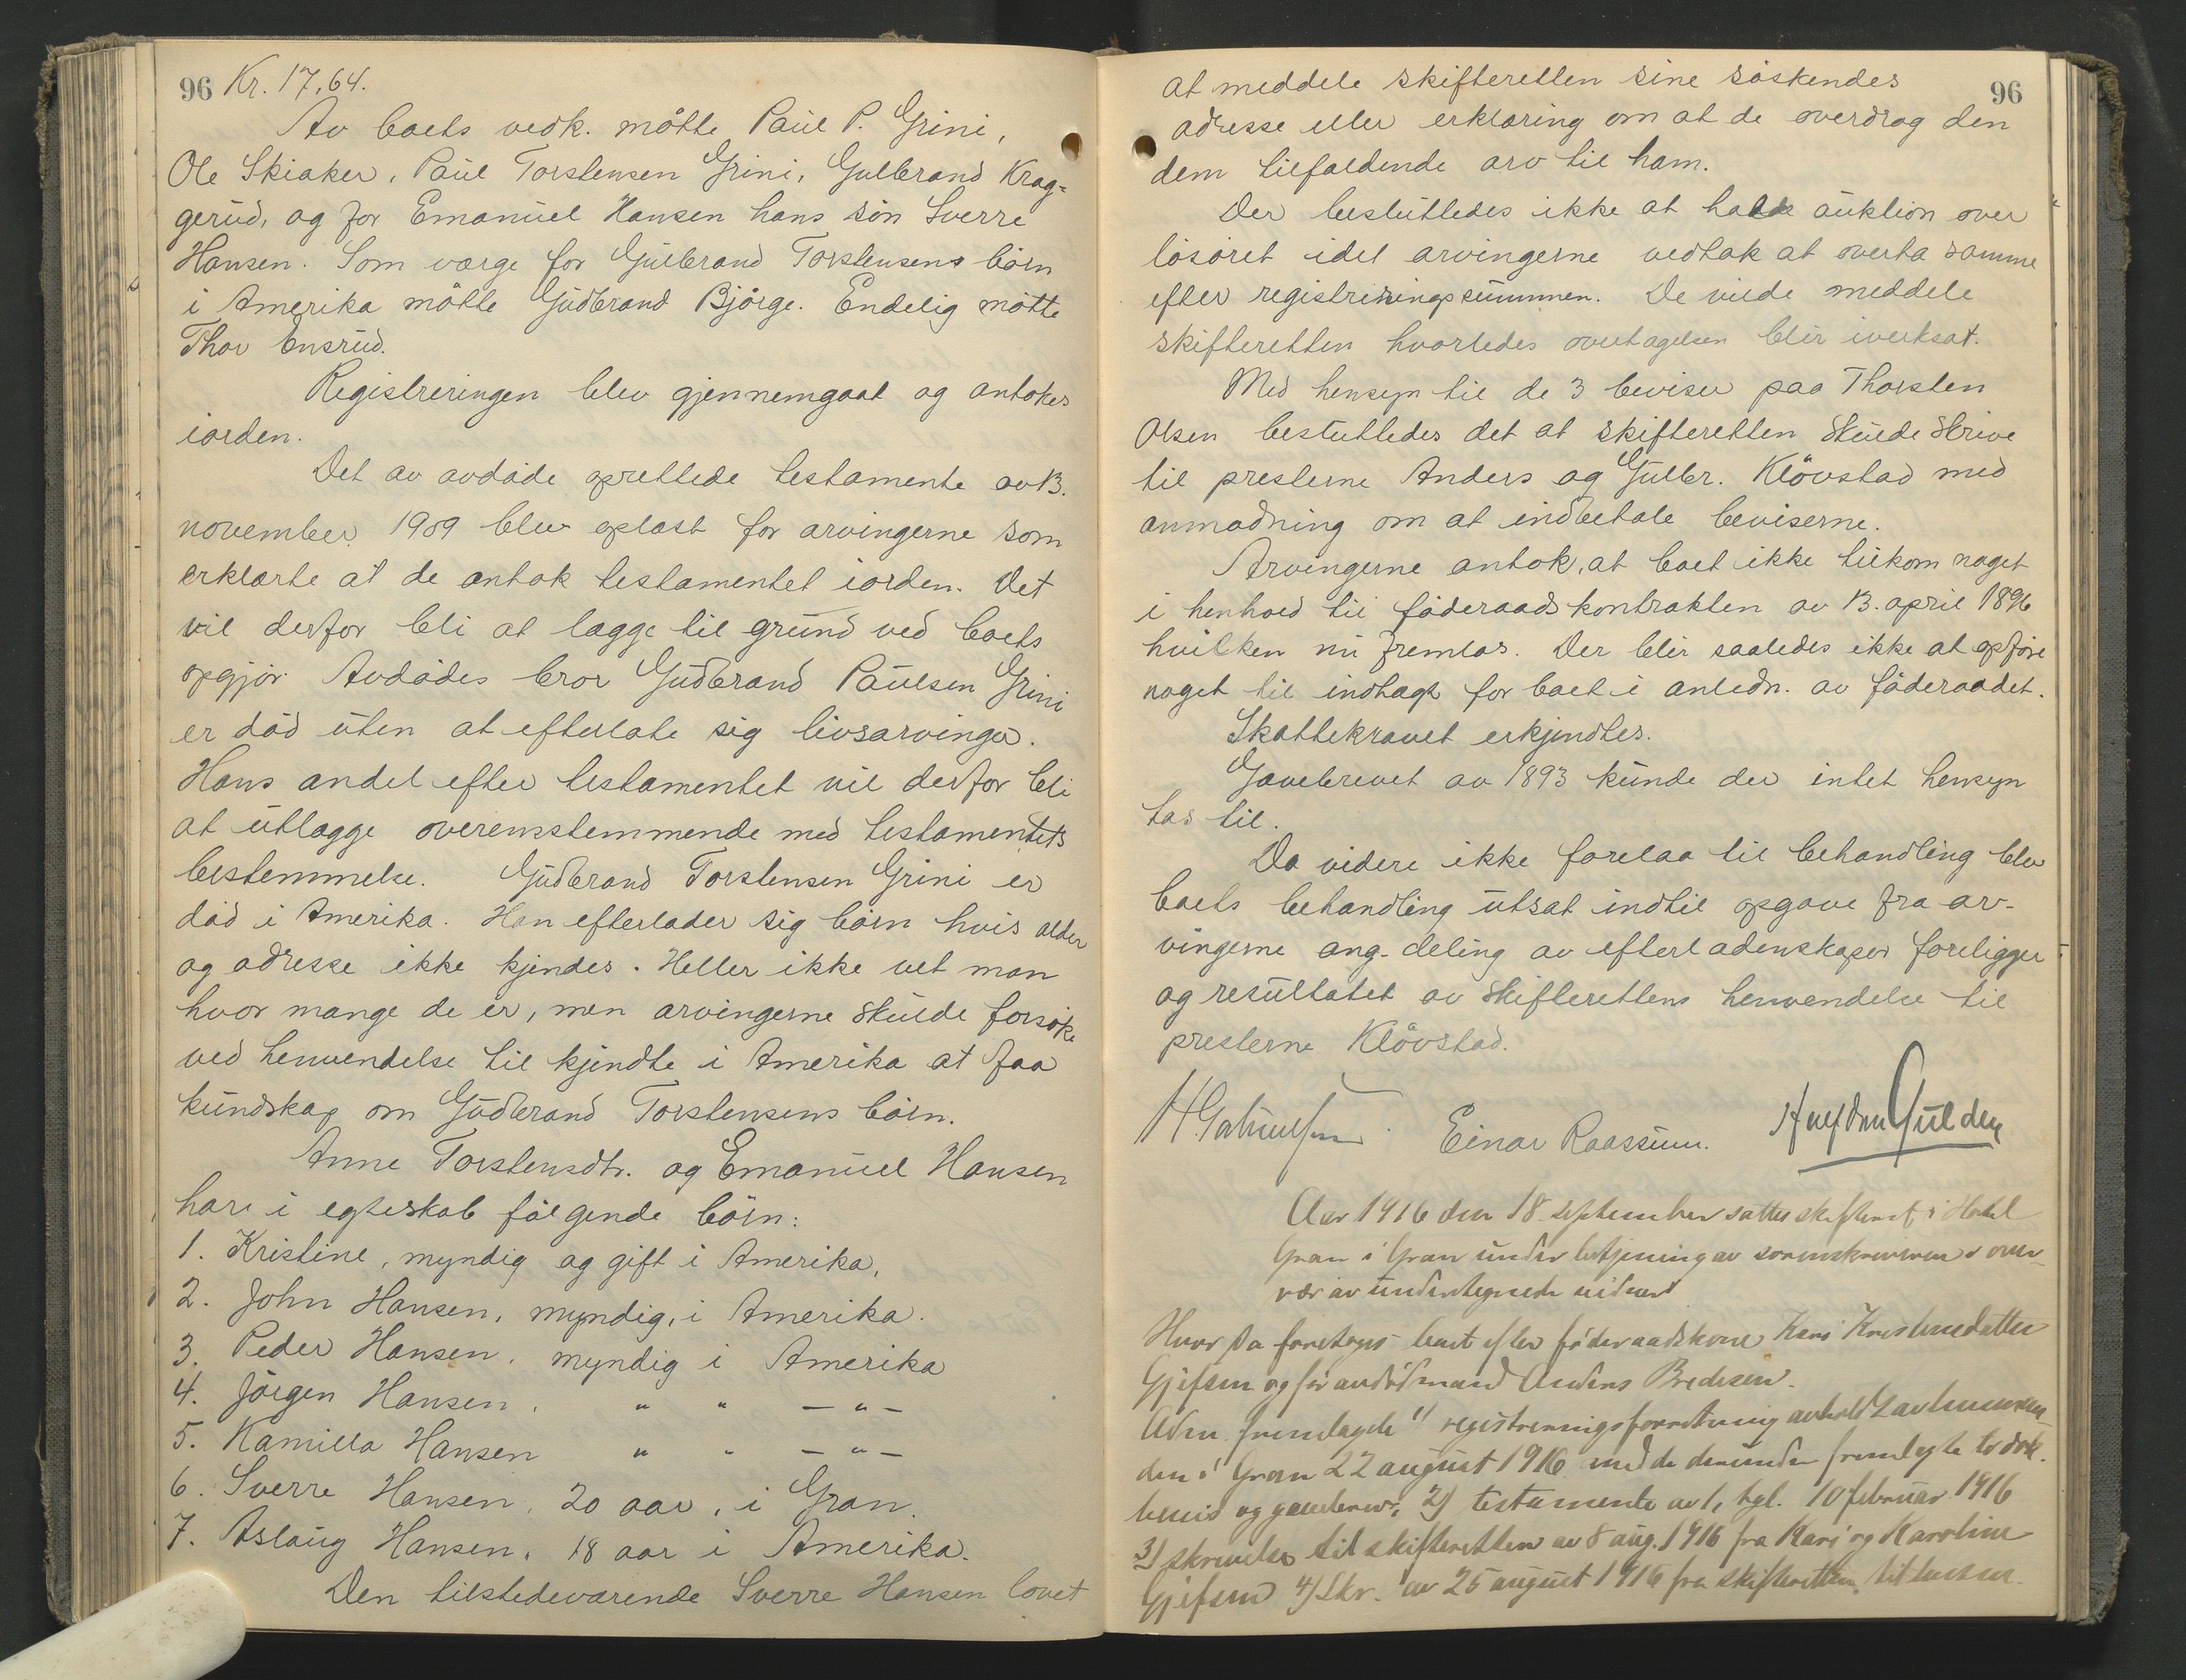 96 Kr. 17,64.
Av boets vedk. mötte Paul P. Grini,
Ole Skiaker, Paul Torstensen Grini, Gulbrand Krag=
gerud, og for Emanuel Hansen hans sön Sverre
Hansen. Som værge for Gulbrand Torstensens börn
i Amerika mötte Gudbrand Bjørge. Endelig mötte
Thor Ensrud.
Registreringen blev gjennemgaat og antokes
iorden.
Det av avdöde oprettede testamente av 13.
november 1909 blev oplæst for arvingerne som
erklærte at de antok testamentet iorden. Det
vil derfor bli at lægge til grund ved boets
opgjör. Avdödes bror Gudbrand Paulsen Grini
er död uten at efterlate sig livsarvinger.
Hans andel efter testamentet vil derfor bli
at utlægge overensstemmende med testamentets
bestemmelse. Gudbrand Torstensen Grini er
död i Amerika. Han efterlader sig börn hvis alder
og adresse ikke kjendes. Heller ikke vet man
hvor mange de er, men arvingerne skulde forsöke
ved henvendelse til kjendte i Amerika at faa
kundskap om Gudbrand Torstensens börn.
Anne Torstensdtr. og Emanuel Hansen
har i egteskab fölgende börn:
1. Kristine, myndig og gift i Amerika,
2. John Hansen, myndig, i Amerika.
3. Peder Hansen, myndig i Amerika
4. Jörgen Hansen, " " — " —
5. Kamilla Hansen " " — " —
6. Sverre Hansen, 20 aar, i Gran.
7. Aslaug Hansen, 18 aar i Amerika.
Den tilstedeværende Sverre Hansen lovet
96
at meddele skifteretten sine söskendes
adresse eller erklæring om at de overdrog den
dem tilfaldende arv til ham.
Der besluttedes ikke at holde auktion over
lösöret idet arvingerne vedtok at overta samme
efter registreringssummen. De vilde meddele
skifteretten hvorledes overtagelsen blir iverksat.
Med hensyn til de 3 beviser paa Thorsten
Olsen besluttedes det at skifteretten skulde skrive
til presterne Anders og Gulbr. Klövstad med
anmodning om at indbetale beviserne.
Arvingerne antok, at boet ikke tilkom noget
i henhold til föderaadskontrakten av 13. april 1896
hvilken nu fremlas. Der blir saaledes ikke at opföre
noget til indtægt for boet i anledn. av föderaadet.
Skattekravet erkjendtes.
Gavebrevet av 1893 kunde der intet hensyn
tas til.
Da videre ikke forelaa til behandling blev
boets behandling utsat indtil opgave fra ar-
vingerne ang. deling av efterladenskaper foreligger
og resultatet av skifterettens henvendelse til
presterne Klövstad.
Einar Raassum. Gulden
Aar 1916 den 18 september sattes skifteret i Hotel
Gran i Gran under betjening av sorenskriveren i over-
vær av undertegnede vidner
Hvor da foretoges boet efter föderaadskone Kari Kristensdatter
Gjefsen og för avdöd mand Anders Bredesen.
Adm. fremlagde 1) registreringsforretning avholdt av lensman-
den i Gran 22 august 1916 med de derunder fremlagte
bevis og gavebrev, 2) testamente av 1, tgl. 10 februar 1916
3) skrivelse til skifteretten av 8 aug. 1916 fra Kari og Karoline
Gjefsen 4) Skr. av 25 august 1916 fra skifteretten til